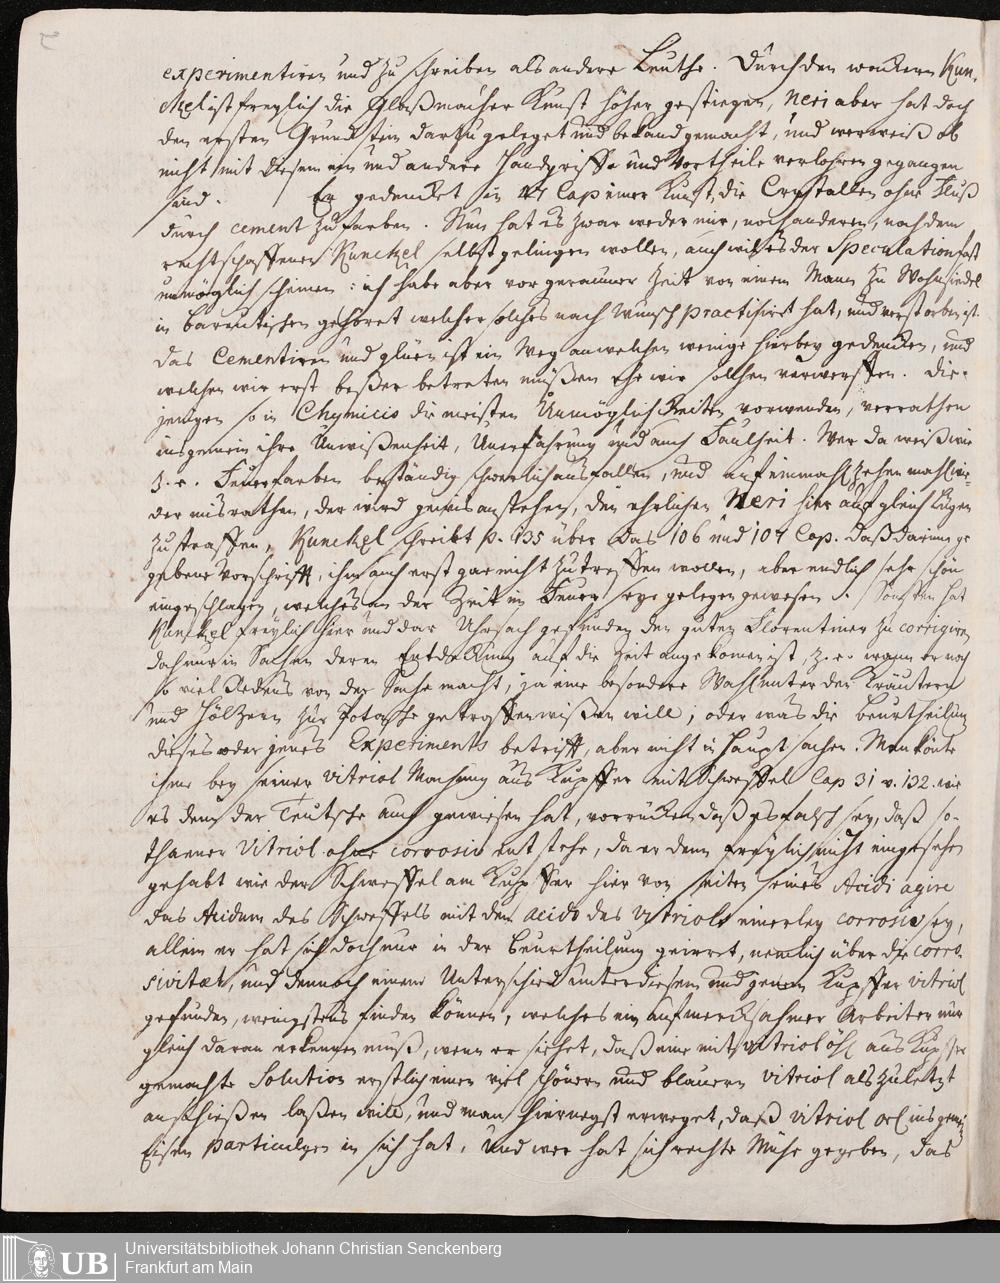 experimentiren und zu schreiben als andere Leuthe. Durch den wackern Kun-
ckel ist freylich die Glaßmacher Kunst höher gestiegen, Neri aber hat doch
den ersten Grundstein darzu geleget und bekand gemacht, und wer weiß ob
nicht mit diesem ein und andere Handgriffe und Vortheile verlohren gegangen
sind. Er gedencket in Cap einer Kunst, die Crystallen ohne Fluß
durch cement zu farben. Nun hat es zwar weder mir, noch anderen, noch dem
rechtschaffenen Kunckel selbst gelingen wollen, auch will es der Speculation fast
unmöglich scheinen: ich habe aber vor geraumer Zeit von einem Mann zu Wohnsiedel
in Bareutischen gehöret welcher solches nach Wunsch practisiret hat, und verstorben ist.
Das Cementiren und glüen ist ein Weg an welchen wenige hierbey gedencken, und
welchen wir erst beßer betreten müßen ehe wir sollchen verwerffen. Die-
jenigen so in Chymicis die meisten Unmöglichkeiten vorwenden, verrathen
insgemein ihre Unwißenheit, Unerfahrung und auch Faulheit. Wer da weiß wie
z. e. Feuerfarben beständig schwerlich ausfallen, und auf einmahl zehen mahl wie-
der misrathen, der wird gewis anstehen, den ehrlichen Neri hier auf gleich Lügen
zu straffen, Kunckel schreibt p. 135 über das 106 und 107 Cap. daß darinne ge
gebene Vorschrifft, ihm auch erst gar nicht zutreffen wollen, aber endlich sehr schön
eingeschlagen, welches an der Zeit im Feuer seye gelegen gewesen. Sonsten hat
Kunckel freylich hier und dar Uhrsach gefunden den guten Florentiner zu corrigiren
doch nur in Sachen deren Entdeckung auf die Zeit angekomen ist, z. e. wann er noch
so viel Redens von der Sache macht, ja eine besondere Wahl unter den Kräutern
und Höltzern zur Potasche getroffen wißen will; oder was die Beurtheilung
dieses oder jenes Experiments betrifft, aber nicht in Hauptsachen. Man könte
ihme bey seiner Vitriol Machung aus Kupffer mit Schweffel Cap 31 v. 132. wie
es denn der Teutsche auch gewiesen hat, vorrücken, daß es falsch sey, daß so-
thaner Vitriol ohne corrosiv entstehe, da er denn freylich nicht eingesehen
gehabt wie der Schweffel am Kupffer hier von seiten seines Acidi agire
das Acidum des Schweffels mit dem acido des Vitriols einerley corrosiv sey,
allein er hat sich doch nur in der Beurtheilung geirret, nemlich über die corro-
sivitæt, und dennoch einen Unterschied unter diesem und jenem Kupffer Vitriol
gefunden, wenigstens finden können, welches ein aufmercksahmer Arbeiter nun
gleich daran erkennen muß, wenn er siehet, daß eine mit Vitriolöhl aus Kupffer
gemachte Solution erstlich einen viel schönern und blauern Vitriol als zuletzt
anschießen laßen will, und man hiernegst erweget, daß Vitriol Oel ins gemein
Eisen particulgen in sich hat. Und wer hat sich rechte Mühe gegeben, das
Universitätsbibliothek Johann Christian Senckenberg
Frankfurt am Main
UB